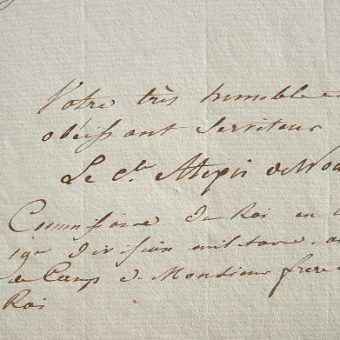 Votre très humble e
obéissant Serviteur
Le Cte Alexis de No
Commissaire du Roi en
19e division militare. a
de Camp de Monsieur frere
Roi